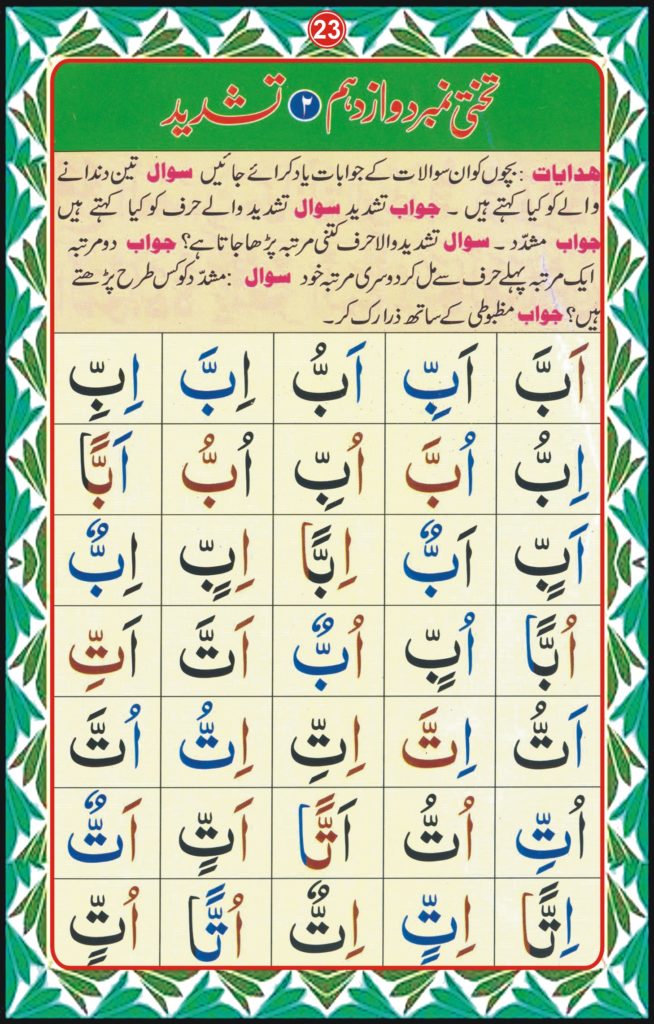 23
تختی نمبر دوازدہم ۲ تشدید
ھدایات : بچوں کو ان سوالات کے جوابات یاد کرائے جائیں سوال تین دندانے
والے کو کیا کہتے ہیں ۔ جواب تشدید سوال تشدید والے حرف کو کیا کہتے ہیں
جواب مشدّد ۔ سوال تشدید والا حرف کتنی مرتبہ پڑھا جاتا ہے؟ جواب دو مرتبہ
ایک مرتبہ پہلے حرف سے مل کر دوسری مرتبہ خود سوال : مشدّد کو کس طرح پڑھتے
ہیں؟ جواب مظبوطی کے ساتھ ذرا رک کر۔
اَبَّ اَبِّ اَبُّ اِبَّ اِبِّ
اِبُّ اُبَّ اُبِّ اُبُّ اَبًّا
اَبٍّ اَبٌّ اِبًّا اِبٍّ اِبٌّ
اُبًّا اُبٍّ اُبٌّ اَتَّ اَتِّ
اَتُّ اِتَّ اِتِّ اِتُّ اُتَّ
اُتِّ اُتُّ اَتًّا اَتٍّ اَتٌّ
اِتًّا اِتٍّ اِتٌّ اُتًّا اُتٍّ